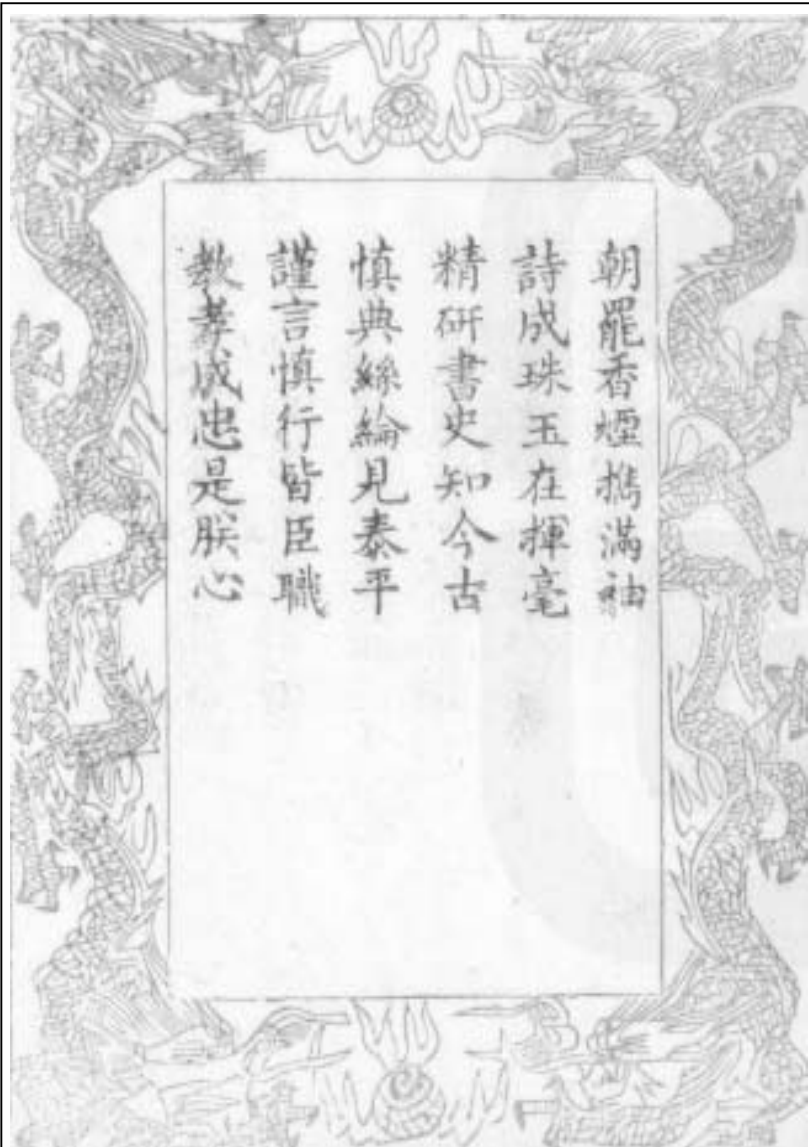 朝罷香煙携滿袖
詩成珠玉在揮毫
精研書史知今古
慎典絲綸見泰平
謹言慎行皆臣職
教孝成忠是朕心